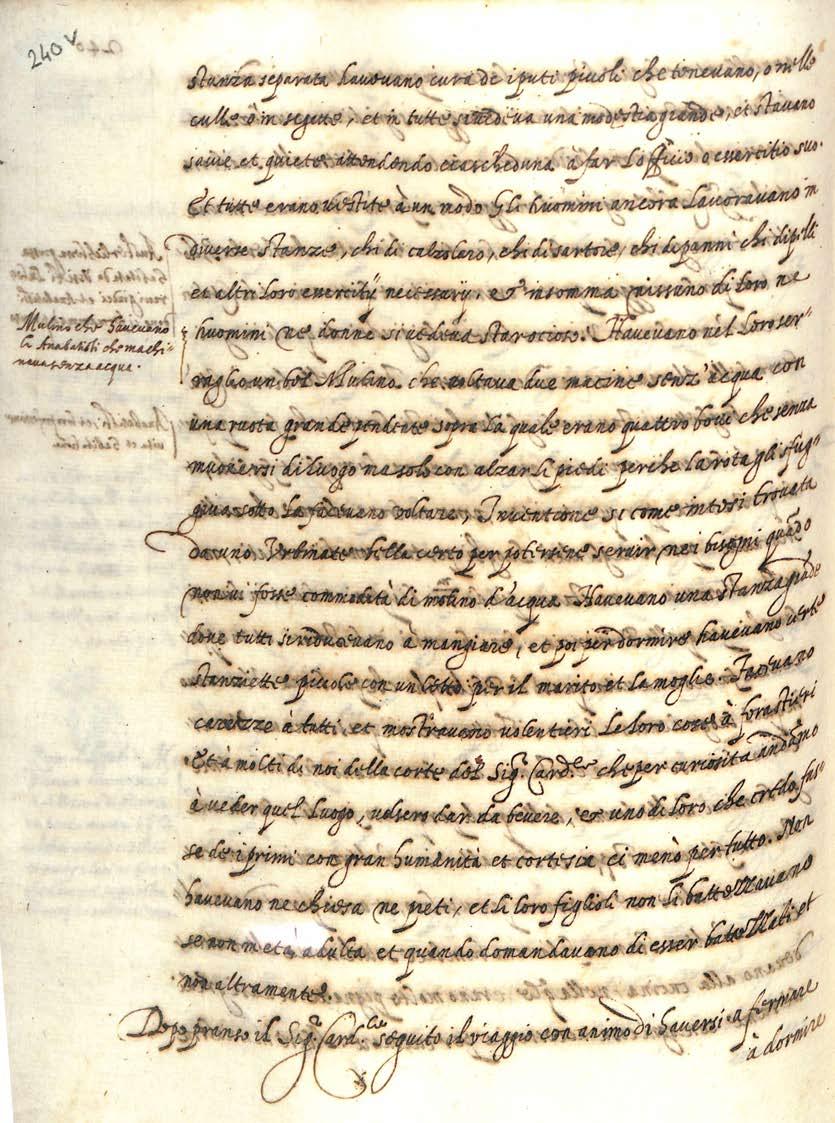 240v
stanza separata havevano cura de i puti picoli che tenevano, o nelle
culle ò in segette, et in tutte si vedeva una modestia grande, et stavano
savie et quiete attendendo ciascheduna a far l'officio o essercitio suo.
Et tutte erano vestite à un modo Gli huomini ancora lavoravano in
diverse stanze, chi di calzolaro, chi di sartore, chi de panni chi di peli
et altri loro esercitij necessarij, et insomma nissuno di loro ne
huomini ne donne si vedeva star ocioso. Havevano nel loro ser-
raglio un bel Mulino che voltava due macine senz'acqua con
una ruota grande pendente sopra la quale erano quattro bovi che senza
muoversi di luogo ma solo con alzar li piedi perche la rota gli sfug-
giva sotto la facevano voltare, Inventione si come intesi trovata
da uno Urbinate bella certo per potersene servir ne i bisogni quādo
non vi fosse commodità di molino d'acqua Havevano una stanza grāde
dove tutti si riducevano à mangiare, et poi per dormire havevano certe
stanziette picole con un letto per il marito et la moglie. Facevano
carezze à tutti, et mostravano volentieri le loro cose à forastieri
Et à molti di noi della corte del Sigr. Cardle che per curiosità andāmo
à veder quel luogo, volsero dar da bevere, et uno di loro che credo fus-
se de i primi con gran humanità et cortesia ci menò per tutto. Non
havevano ne chiesa ne preti, et li loro figlioli non li battezzavano
se non in età adulta et quando domandavano di esser battezzati et
non altramente.
Dopo pranso il Sigr. Cardle seguito il viaggio con animo di haversi a fermare
à dormire
Mulino che havevano
li Anabatisti che machi-
nava senza acqua.